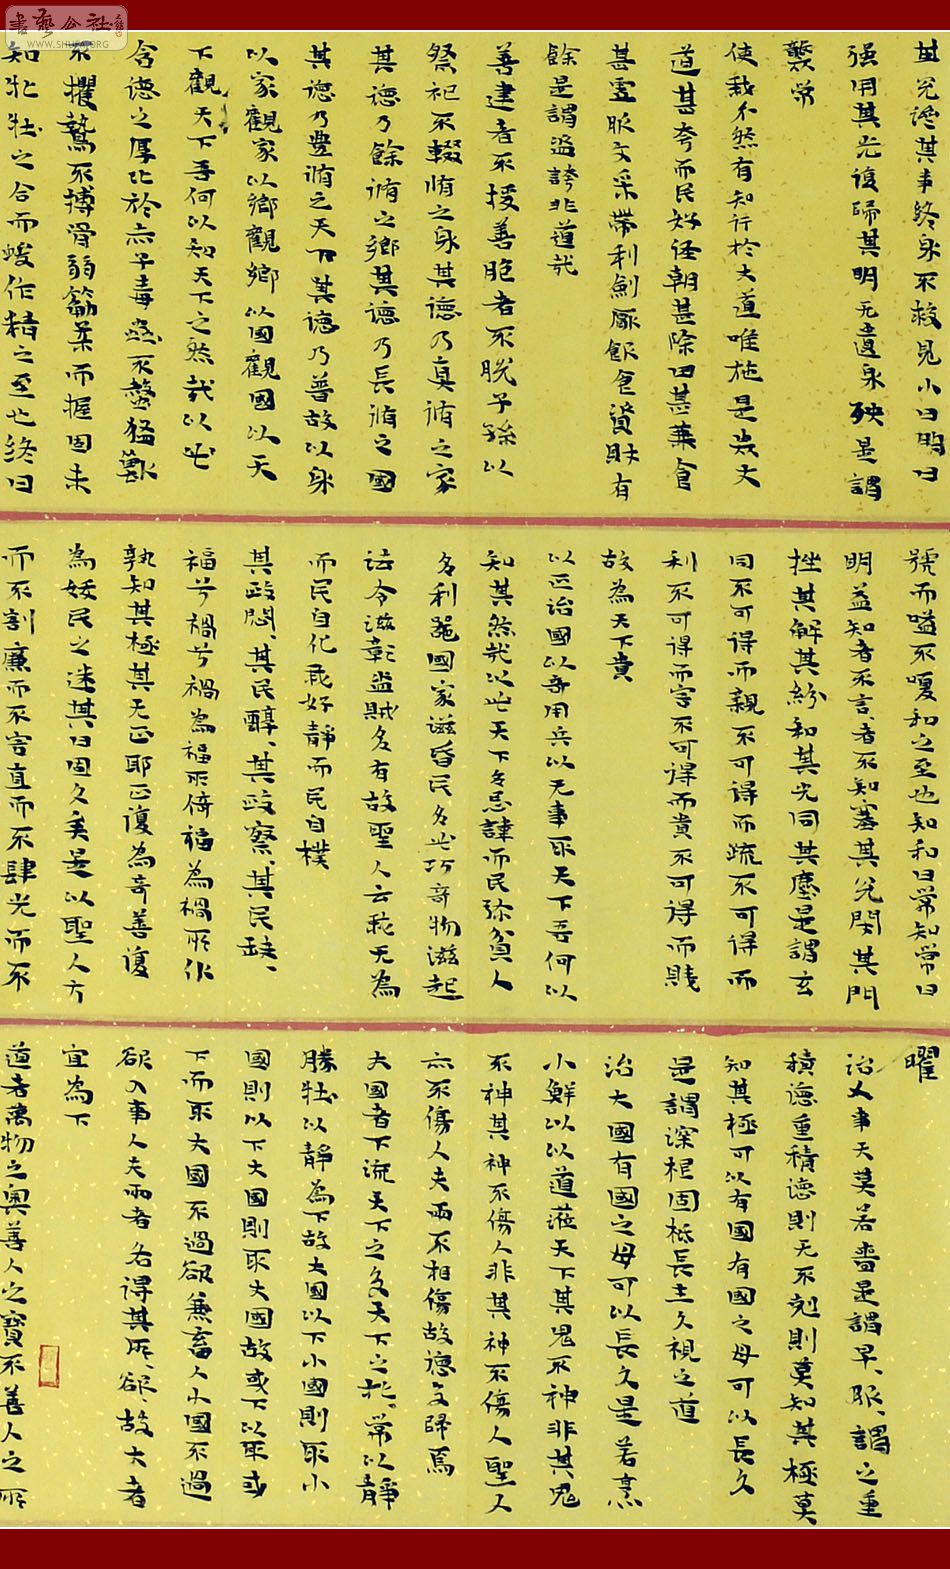 書藝公社
WWW.SHUFA.ORG
其兌濟其事終身不救見小曰明曰
强用其光復歸其明无遺身殃是謂
襲常
使我不然有知行於大道唯施是畏大
道甚夸而民好径朝甚除田甚蕪食
甚虛服文采帶利劍厭飲食資財有
餘是謂盗誇非道哉
善建者不拔善脃者不脱子孫以
祭祀不輟脩之身其德乃真脩之家
其德乃餘脩之鄉其德乃長脩之國
其德乃豊脩之天下其德乃普故以身
以家觀家以鄉觀鄉以國觀國以天
下觀天下吾何以知天下之然哉以此
含德之厚比於赤子毒虫不螫猛獸
不攫鷙不搏骨弱筋柔而握固未
知牝牡之合而峻作精之至也終曰
號而嗌不嗄和之至也知和曰常知常曰
明益知者不言、者不知塞其兌閉其門
挫其解其紛和其光同其塵是謂玄
同不可得而親不可得而疏不可得而
利不可得而害不可得而貴不可得而賎
故為天下貴
以正治國以奇用兵以无事取天下吾何以
知其然哉以此天下多忌諱而民弥貧人
多利器國家滋昏民多比巧奇物滋起
法令滋彰盗賊多有故聖人云我无為
而民自化我好靜而民自樸
其政悶、其民醇、其政察、其民缺、
福兮禍兮禍為福所倚福為禍所伏
孰知其極其无正耶正復為奇善復
為妖民之迷其日固久矣是以聖人方
而不割廉而不害直而不肆光而不
曜
治人事天莫若嗇是謂早、服、謂之重
積德重積德則无不剋則莫知其極莫
知其極可以有國有國之母可以長久
是謂深根固柢長生久視之道
治大國有國之母可以長久是若烹
小鮮以以道莅天下其鬼不神非其鬼
不神其神不傷人非其神不傷人聖人
亦不傷人夫兩不相傷故德交歸焉
大國者下流天下之交天下之牝、常以靜
勝牡以靜為下故大國以下小國則取小
國則以下大國則取大國故或下以取或
下而取大國不過欲兼畜人小國不過
欲入事人夫兩者各得其所、欲、故大者
宜為下
道者萬物之奥善人之寶不善人之所